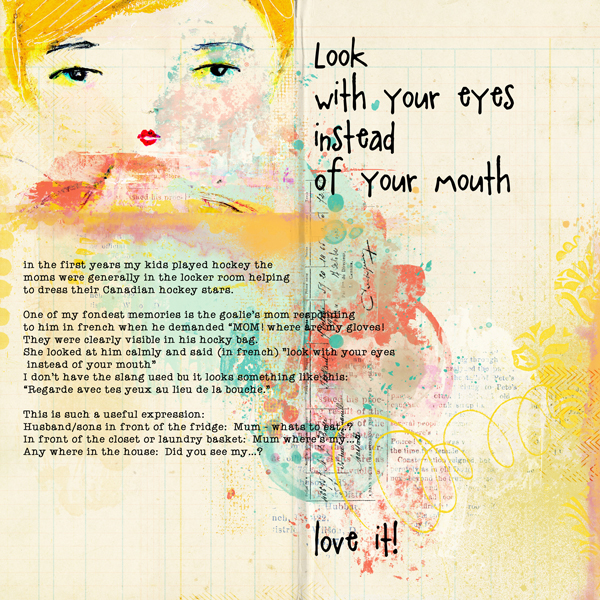 Look
with your eyes
instead
of your mouth
in the first years my kids played hockey the
moms were generally in the locker room helping
to dress their Canadian hockey stars.
One of my fondest memories is the goalie's mom responding
to him in french when he demanded "MOM! where are my gloves!
They were clearly visible in his hocky bag.
She looked at him calmly and said (in french) "look with your eyes
instead of your mouth"
I don't have the slang used bu it looks something like this:
"Regarde avec tes yeux au lieu de la bouche."
This is such a useful expression:
Husband/sons in front of the fridge: Mum - whats to eat..?
In front of the closet or laundry basket: Mum where's my...?
Any where in the house: Did you see my...?
love it!